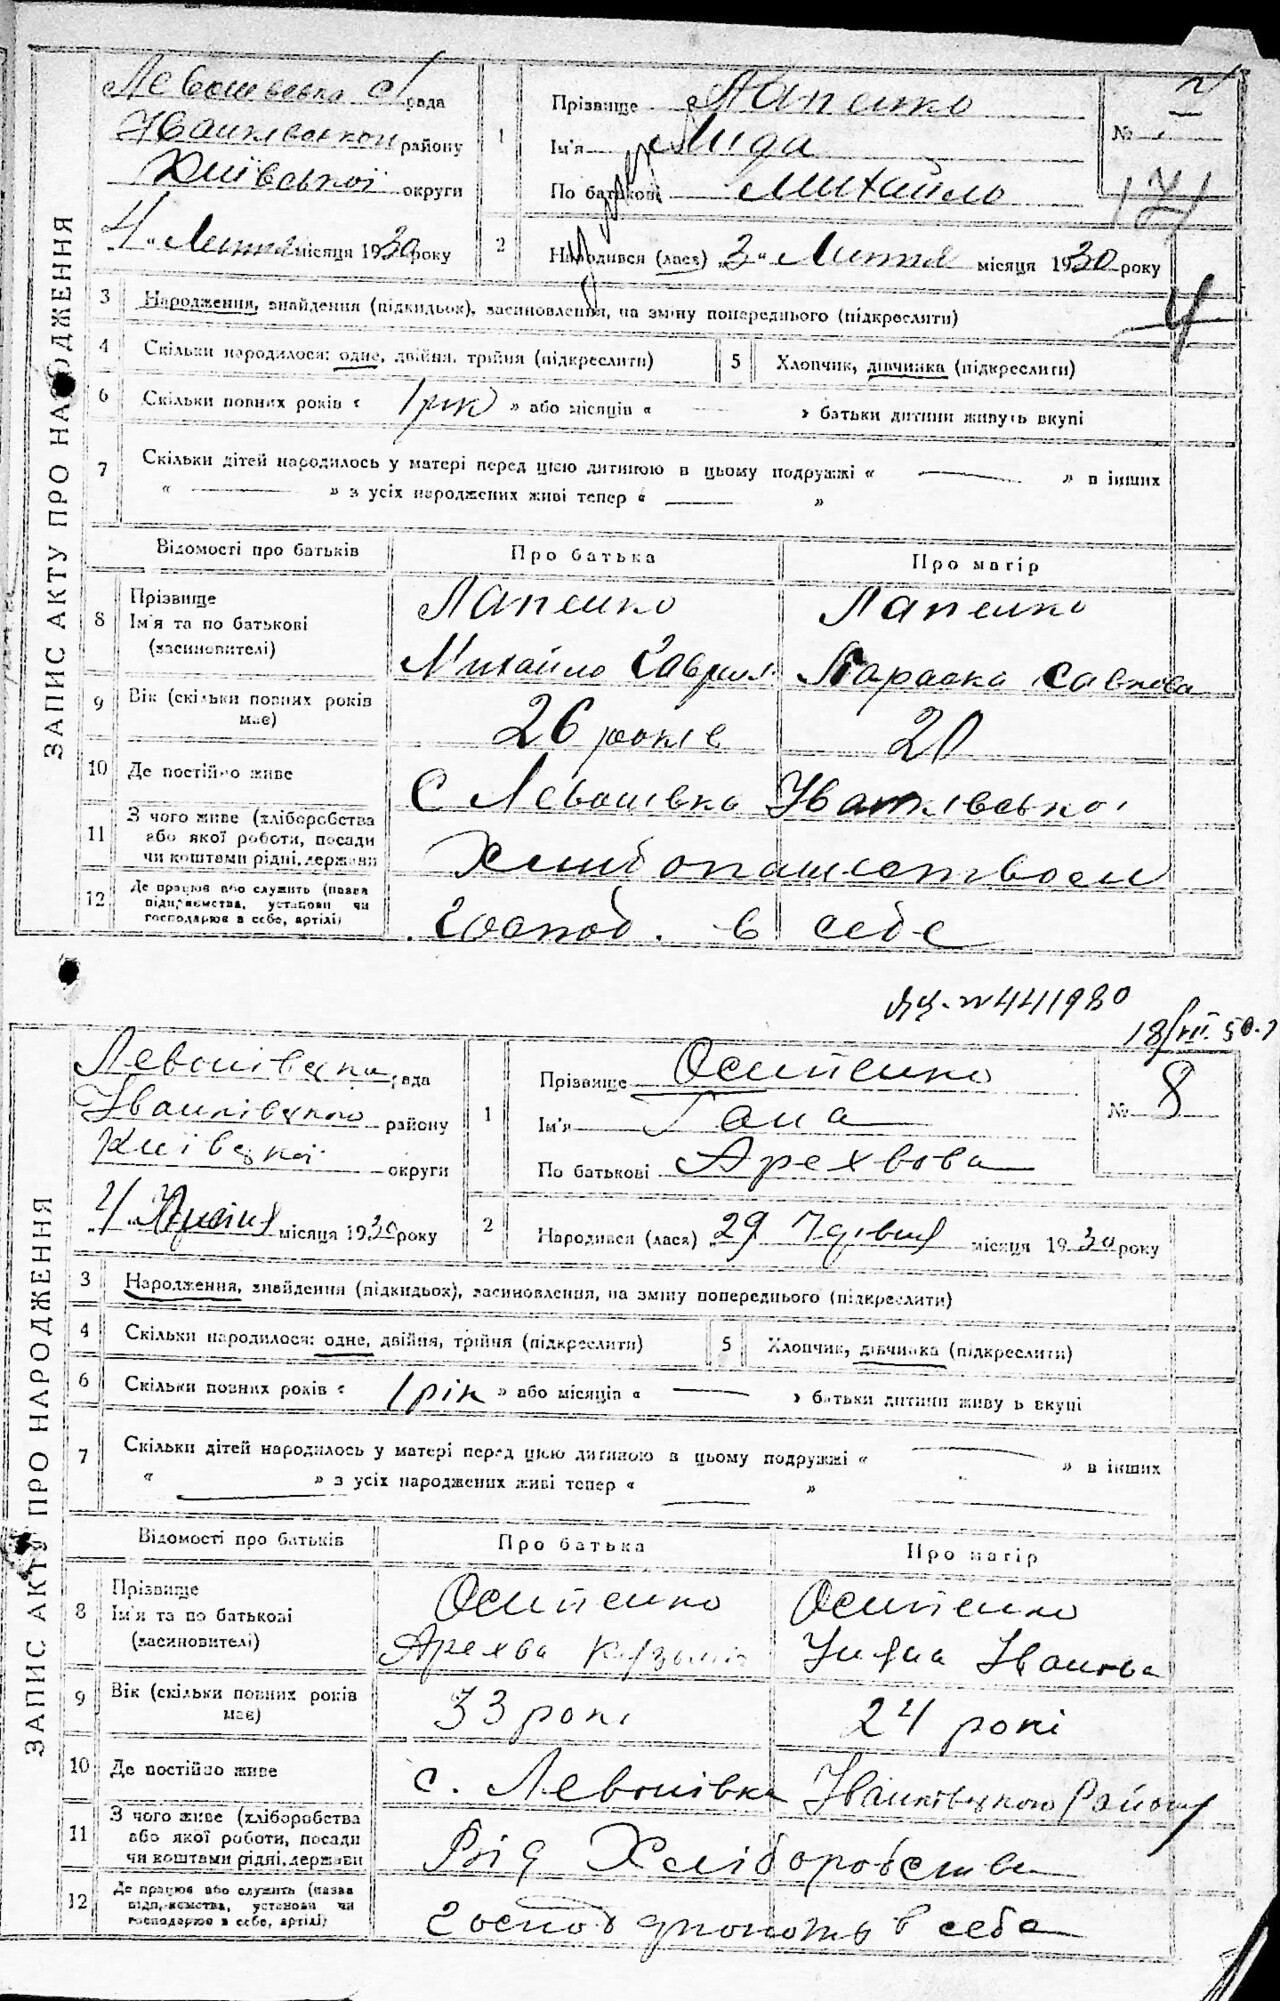 ЗАПИС АКТУ ПРО НАРОДЖЕННЯ
рада
району
Київської округи
4 місяця 1930 року
1
Прізвище Лапенко
Ім'я Лида
По батькові Михайло
№
171
2
Народився (лася) „3“ місяця 1930 року
4
3 Народження, знайдення (підкидьок), засиновлення, на зміну попереднього (підкреслити)
4 Скільки народилося: одне, двійня, трійня (підкреслити)
5 Хлопчик, дівчинка (підкреслити)
6 Скільки повних років « 1 рік » або місяців « — » батьки дитини живуть вкупі
7 Скільки дітей народилось у матері перед цією дитиною в цьому подружжі « — » в інших
« — » з усіх народжених живі тепер « — »
Відомості про батьків Про батька Про матір
8 Прізвище
Ім'я та по батькові
(засиновителі)
Лапенко Лапенко
Михайло Параска
9 Вік (скільки повних років має)
26 років 20
10 Де постійно живе
С
11 З чого живе (хліборобства
або якої роботи, посади
чи коштами рідні, держави
12 Де працює або служить (назва
підприємства, установи чи
господарює в себе, артілі)
господ. в себе
№ 441980
18/VII. 50
ЗАПИС АКТУ ПРО НАРОДЖЕННЯ
рада
району
округи
4 місяця 1930 року
1
Прізвище Осипенко
Ім'я Гана
По батькові Арехвова
№ 8
2
Народився (лася) „29 місяця 1930 року
3 Народження, знайдення (підкидьок), засиновлення, на зміну попереднього (підкреслити)
4 Скільки народилося: одне, двійня, трійня (підкреслити)
5 Хлопчик, дівчинка (підкреслити)
6 Скільки повних років « 1 рік » або місяців « — » батьки дитини живу ь вкупі
7 Скільки дітей народилось у матері перед цією дитиною в цьому подружжі « — » в інших
« — » з усіх народжених живі тепер « — »
Відомості про батьків Про батька Про матір
8 Прізвище
Ім'я та по батькові
(засиновителі)
Осипенко Осипенко
Арехва Іванова
9 Вік (скільки повних років має)
33 рокі 24 рокі
10 Де постійно живе
с. Левонівка
11 З чого живе (хліборобства
або якої роботи, посади
чи коштами рідні, держави
Від Хліборобства
12 Де працює або служить (назва
підприємства, установи чи
господарює в себе, артілі)
в себе